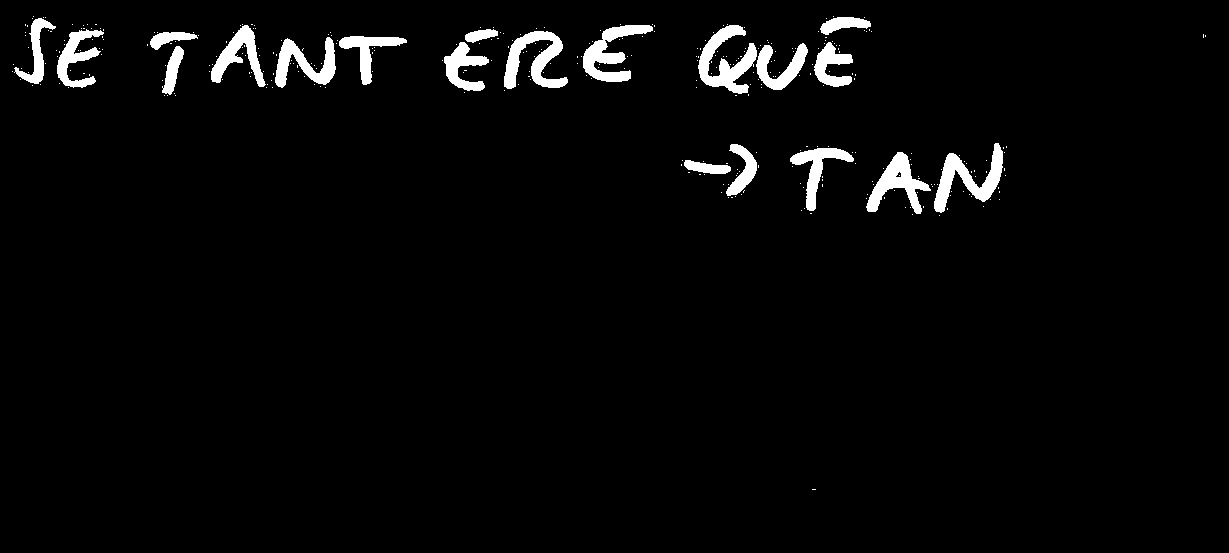 SE TANT ERE QUE
→ TAN